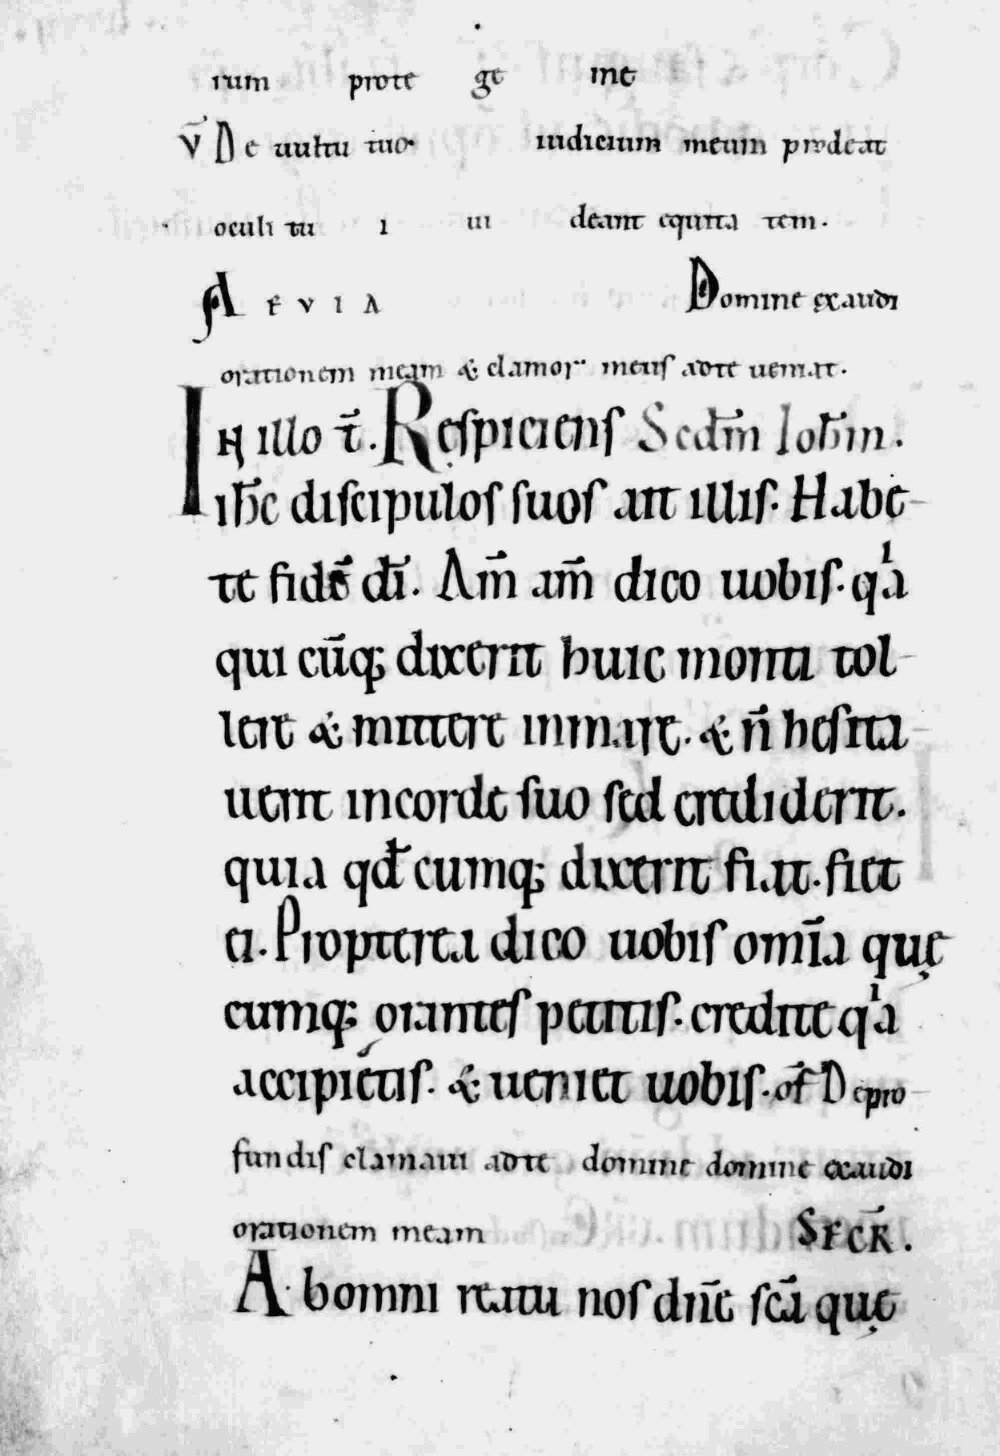 rum prote ge me
V̄ De uultu tuo iudicium meum prodeat
oculi tu i ui deant equita tem.
A E V I A Domine exaudi
orationem meam & clamor meus adte ueniat.
IN illo t̄. Respiciens Scdm̄ Ioh̄m.
ih̄c discipulos suos ait illis. Habe-
te fidē dī. Am̄ am̄ dico uobis. qͥa
qui cūq; dixerit huic monti tol-
lere & mittere inmare. & n̄ hesita-
uerit incorde suo sed crediderit.
quia qđcumq; dixerit fiat. fiet
ei. Propterea dico uobis omīa quę
cumq; orantes petitis. credite qͥa
accipietis. & ueniet uobis. of̄ Depro-
fundis clamaui adte domine domine exaudi
orationem meam SECR̄.
Abomni reatu nos dn̄e sc̄a quę